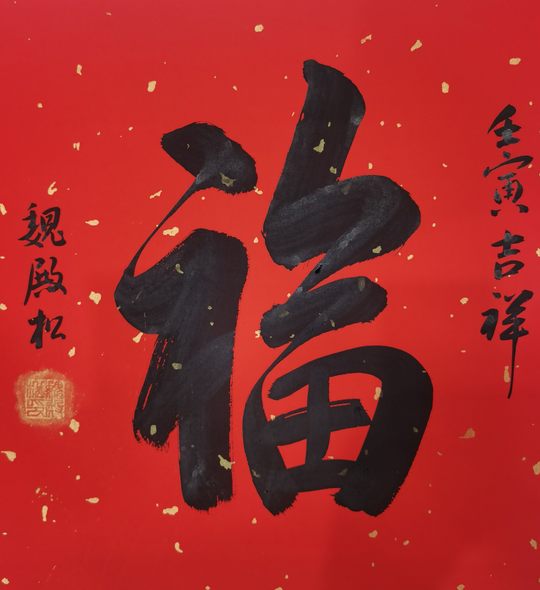 壬寅吉祥
福
魏殿松